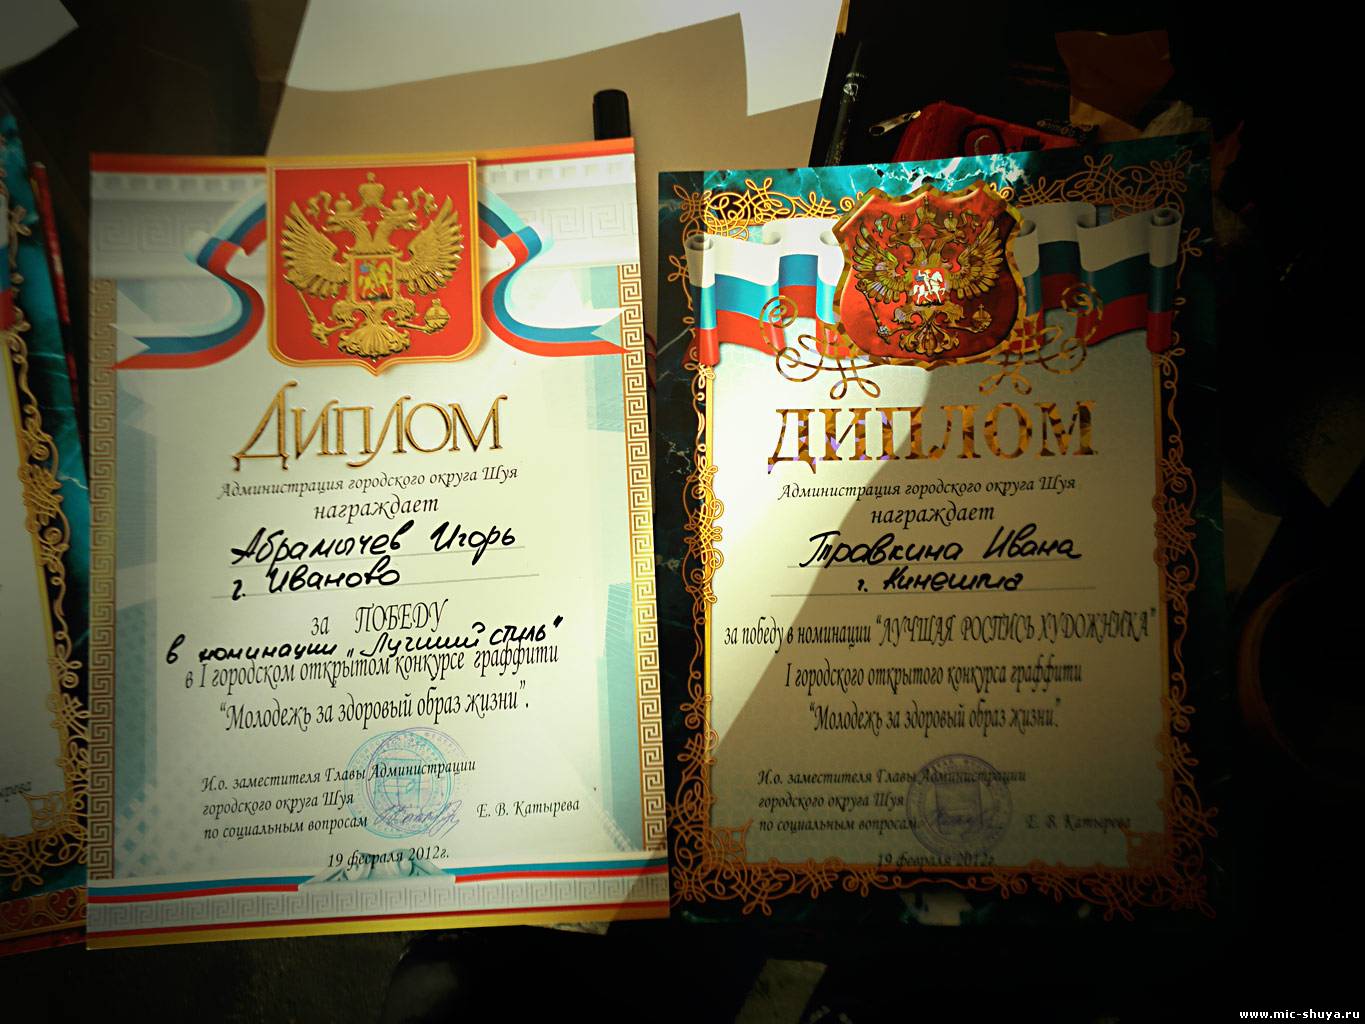 ДИПЛОМ
Администрация городского округа Шуя
награждает
Абрамычев Игорь
г. Иваново
за ПОБЕДУ
в номинации „Лучший стиль"
в I городском открытом конкурсе граффити
“Молодежь за здоровый образ жизни".
И.о. заместителя Главы Администрации
городского округа Шуя
по социальным вопросам
Е. В. Катырева
19 февраля 2012г.
ДИПЛОМ
Администрация городского округа Шуя
награждает
Травкина Ивана
г. Кинешма
за победу в номинации “ЛУЧШАЯ РОСПИСЬ ХУДОЖНИКА"
I городского открытого конкурса граффити
“Молодежь за здоровый образ жизни".
И.о. заместителя Главы Администрации
городского округа Шуя
по социальным вопросам
Е. В. Катырева
19 февраля 2012г.
www.mic-shuya.ru